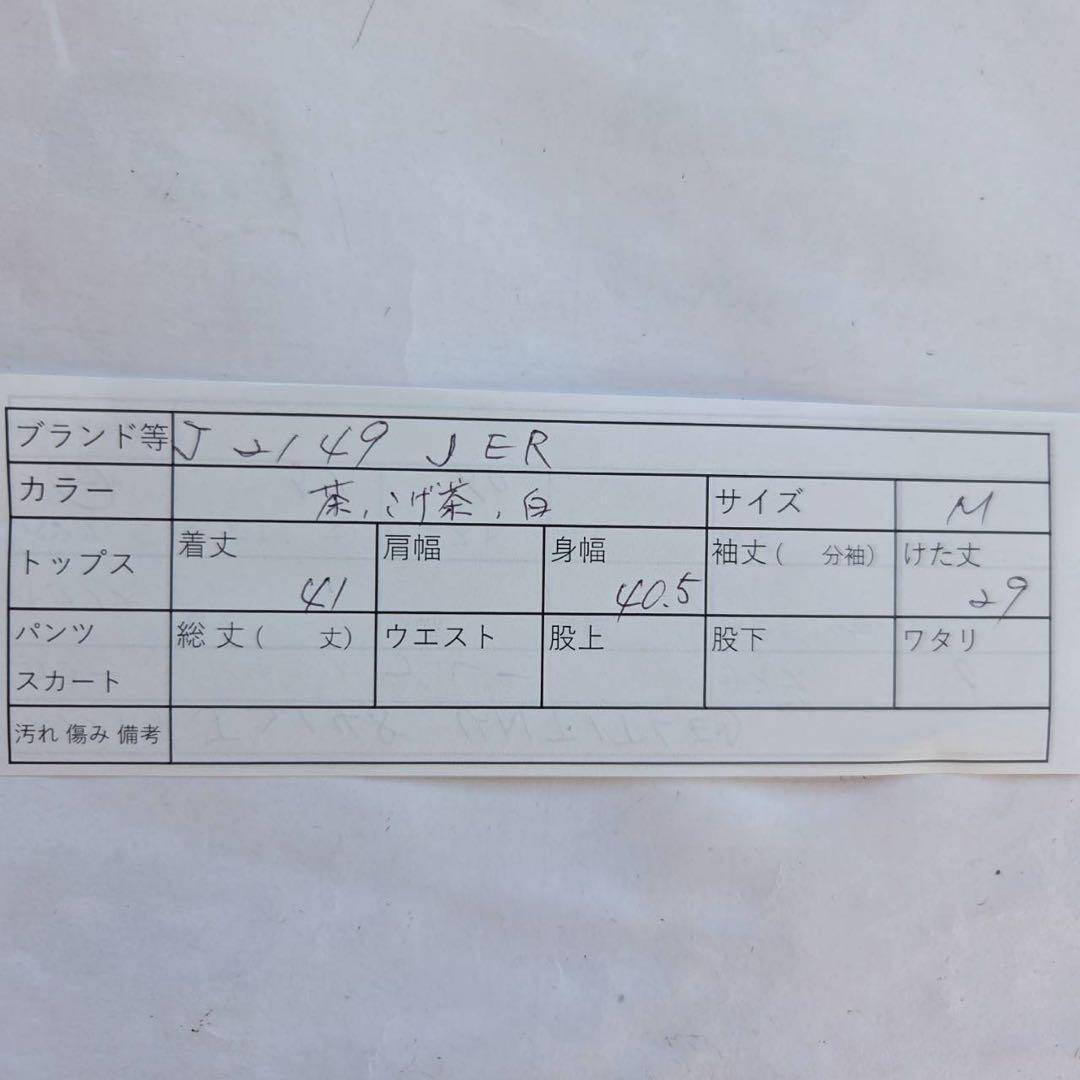 ブランド等 J2149 JER
カラー 茶、こげ茶、白 サイズ M
トップス 着丈 41 肩幅 身幅 40.5 袖丈( 分袖) けた丈 29
パンツ スカート 総丈( 丈) ウエスト 股上 股下 ワタリ
汚れ 傷み 備考